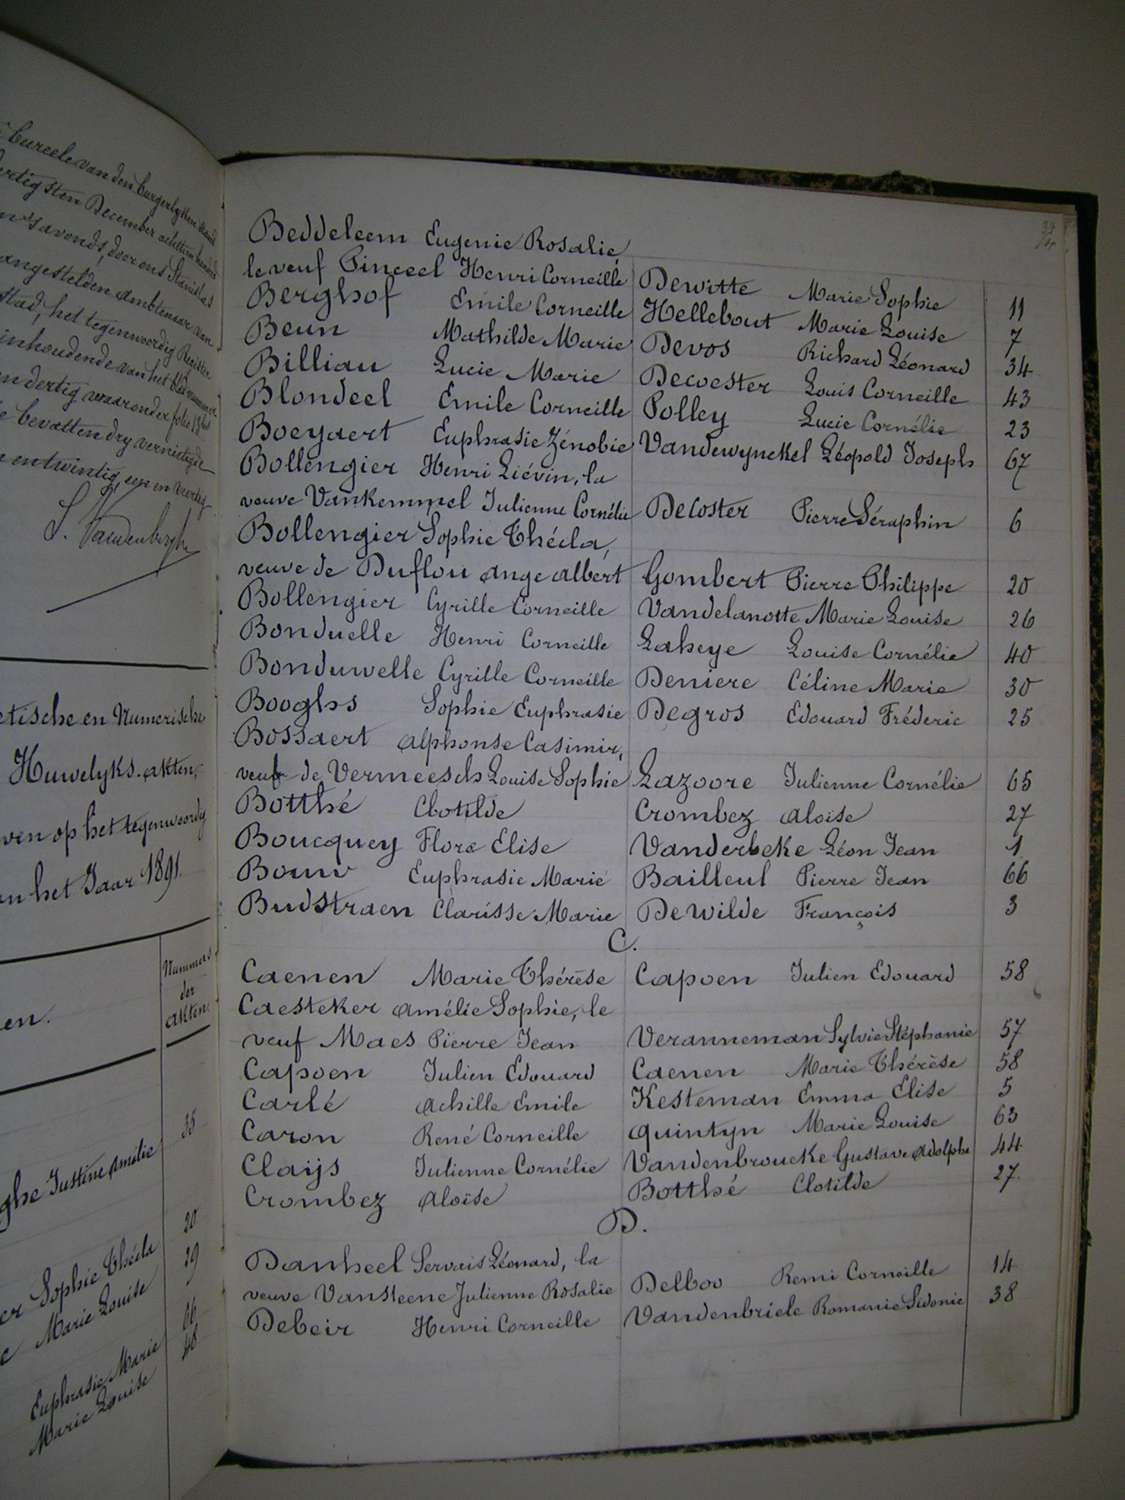 Curcele van den burgerlyken stand
dertigsten December achttien honderd
n's avonds, door ons Stanislas
angestelden ambtenaar van
stad, het tegenwoordig Register
inhoudende van het
en dertig waaronder folio
e bevatten dry vernietigde
entwintig, een en veertig
S. Vandenberghe
etische en Numerische
Huwelyks-akten,
ven op het tegenwoordig
an het Jaar 1891.
Nummers
der
akten
en.
35
ghe Justine Amélie
20
er Sophie Thécla
29
e Marie Louise
66
Euphrasie Marie
48
Marie Louise
Beddeleem Eugenie Rosalie,
le veuf Pinceel Henri Corneille Dewitte Marie Sophie 11
Berghof Emile Corneille Hellebout Marie Louise 7
Beun Mathilde Marie Devos Richard Léonard 34
Billiau Lucie Marie Decoester Louis Corneille 43
Blondeel Emile Corneille Polley Lucie Cornélie 23
Boeyaert Euphrasie Zénobie Vandewynckel Léopold Joseph 67
Bollengier Henri Liévin, la
veuve Vankemmel Julienne Cornélie DeCoster Pierre Séraphin 6
Bollengier Sophie Thécla,
veuve de Duflou Ange Albert Gombert Pierre Philippe 20
Bollengier Cyrille Corneille Vandelanotte Marie Louise 26
Bonduelle Henri Corneille Laheye Louise Cornélie 40
Bonduwelle Cyrille Corneille Deniere Céline Marie 30
Booghs Sophie Euphrasie Degros Edouard Fréderic 25
Bossaert Alphonse Casimir,
veuf de Vermeesch Louise Sophie Lazoore Julienne Cornélie 65
Botthé Clotilde Crombez Aloïse 27
Boucquey Flora Elise Vanderbeke Léon Jean 1
Bouw Euphrasie Marie Bailleul Pierre Jean 66
Budstraen Clarisse Marie DeWilde François 3
C.
Caenen Marie Thérèse Capoen Julien Edouard 58
Caesteker Amélie Sophie, le
veuf Maes Pierre Jean Veranneman Sylvie Stéphanie 57
Capoen Julien Edouard Caenen Marie Thérèse 58
Carlé Achille Emile Kesteman Emma Elise 5
Caron René Corneille Quintyn Marie Louise 63
Claÿs Julienne Cornélie Vandenbroucke Gustave Adolphe 44
Crombez Aloïse Botthé Clotilde 27
D.
Danheel Servais Léonard, la
veuve Vansteene Julienne Rosalie Delboo Remi Corneille 14
Debeir Henri Corneille Vandenbriele Romanie Sidonie 38